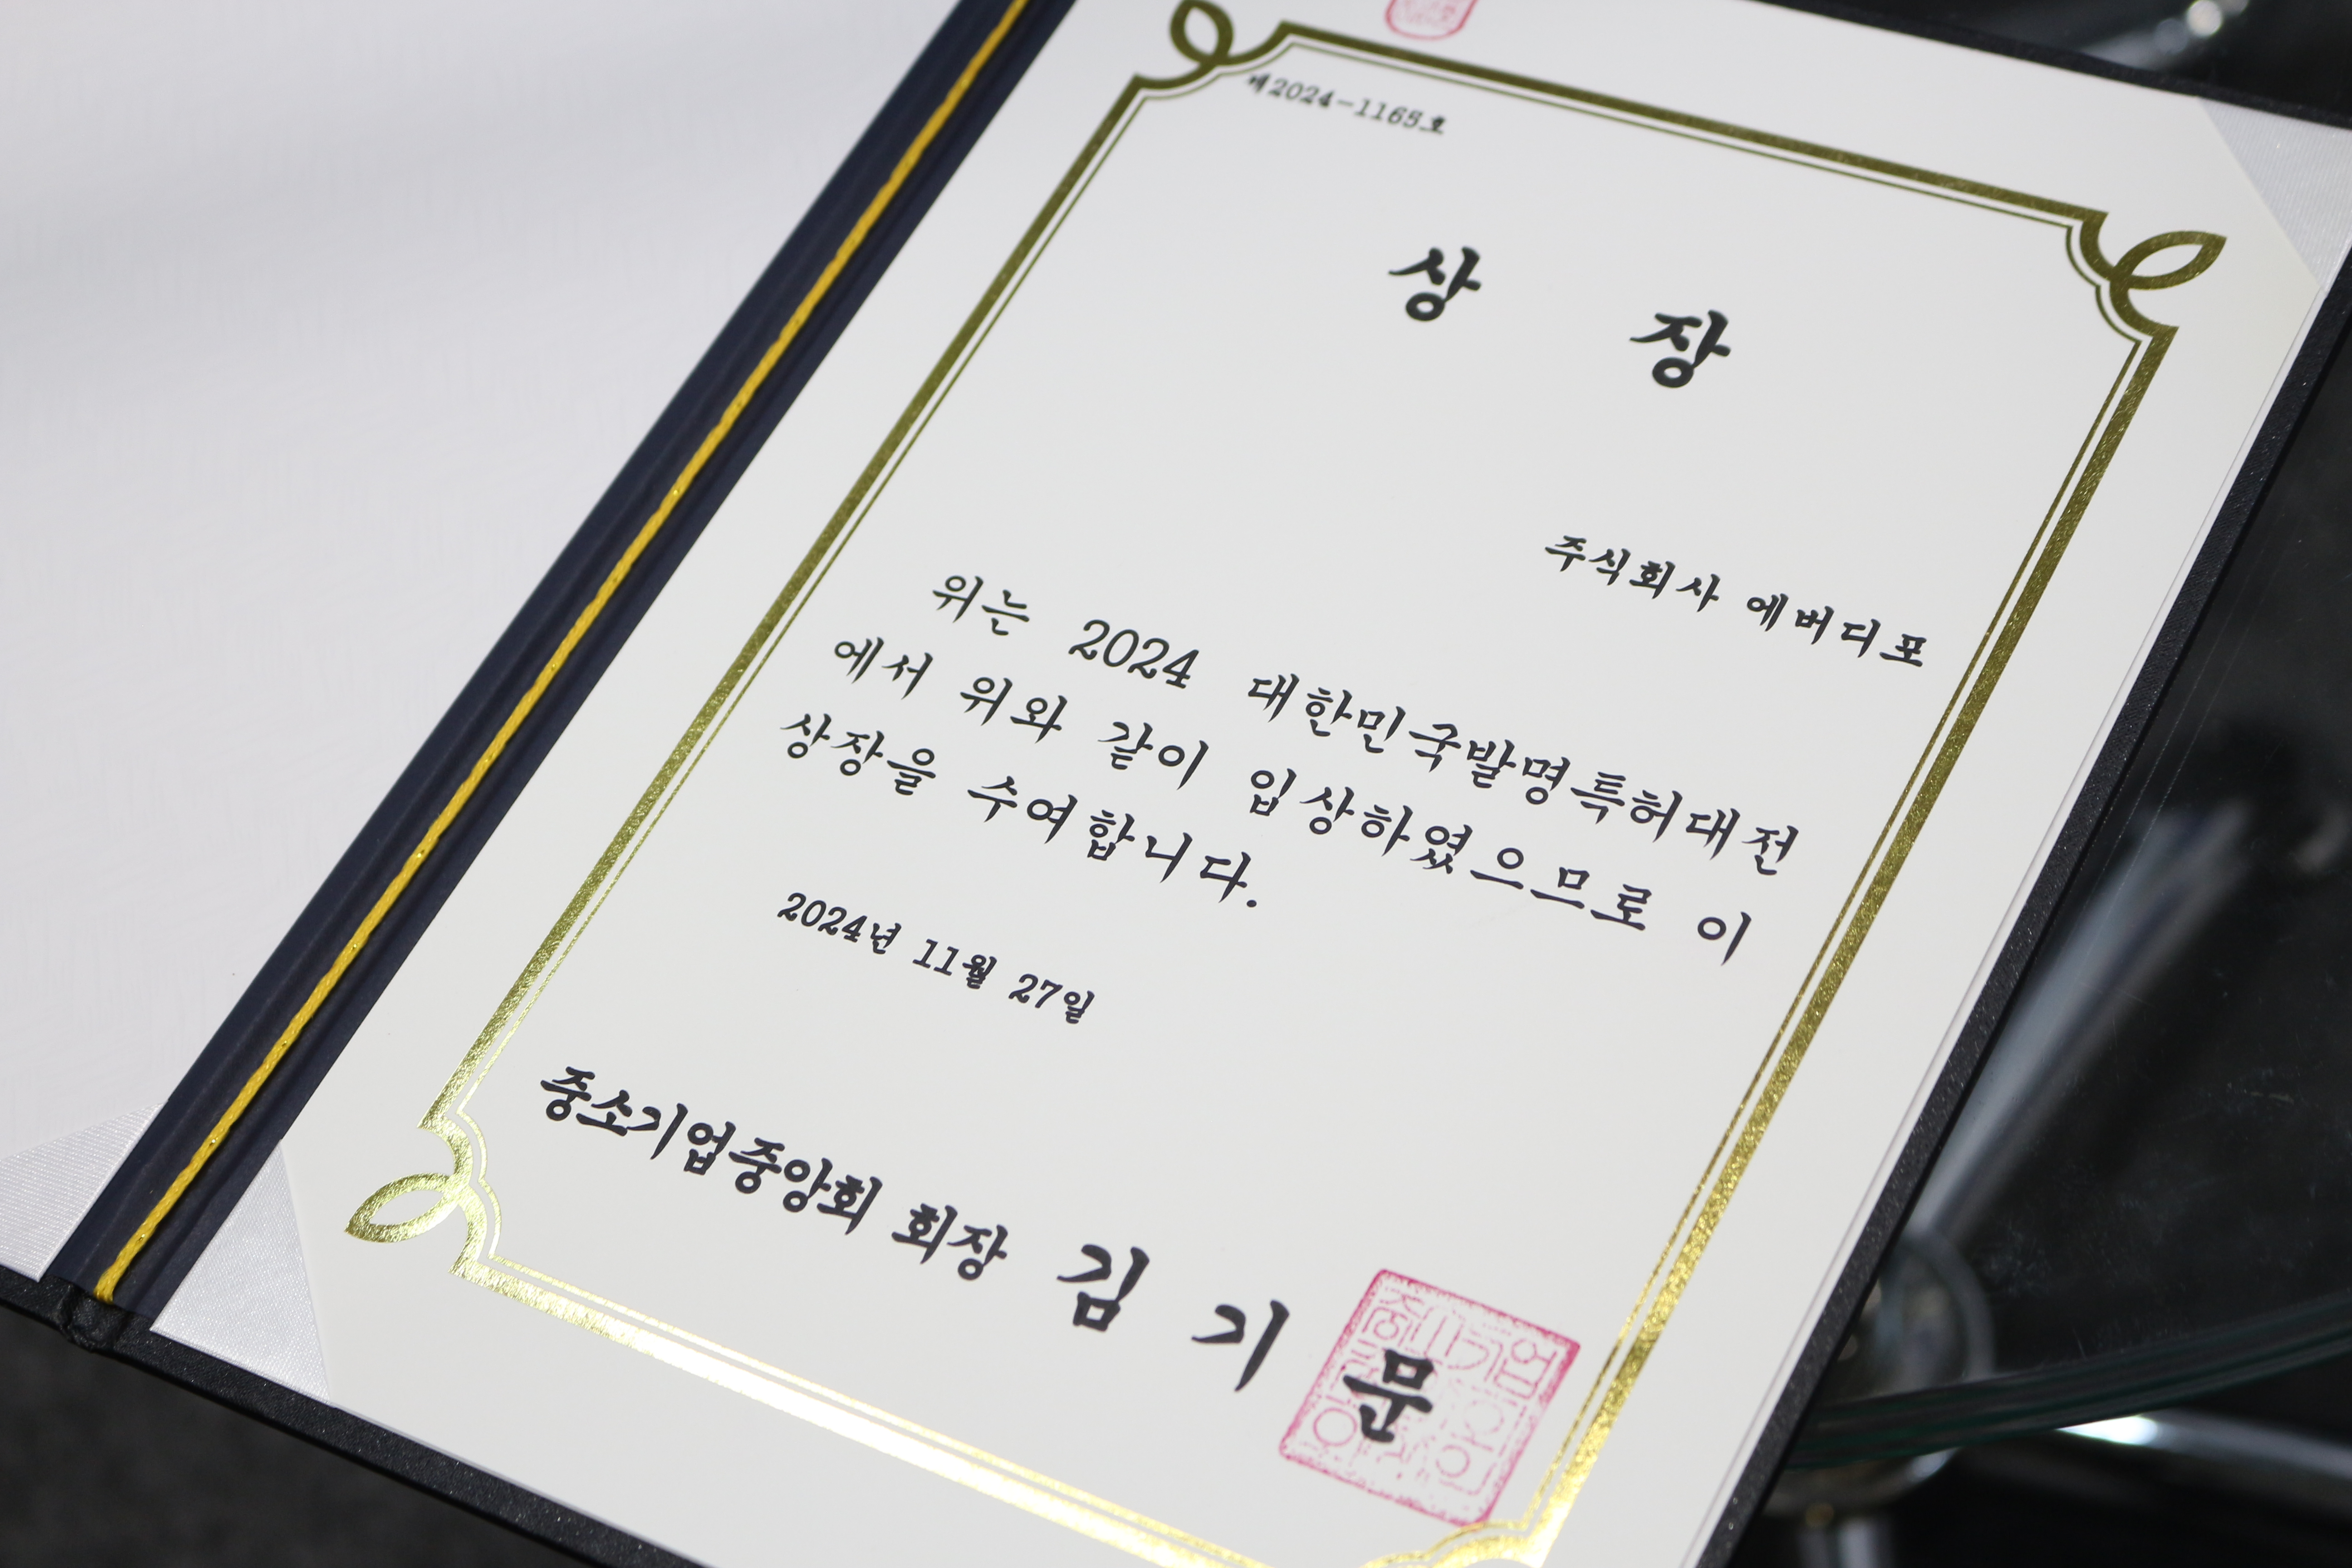 제2024-1165호
상 장
주식회사 에버디포
위는 2024 대한민국발명특허대전
에서 위와 같이 입상하였으므로 이
상장을 수여합니다.
2024년 11월 27일
중소기업중앙회 회장 김 기 문